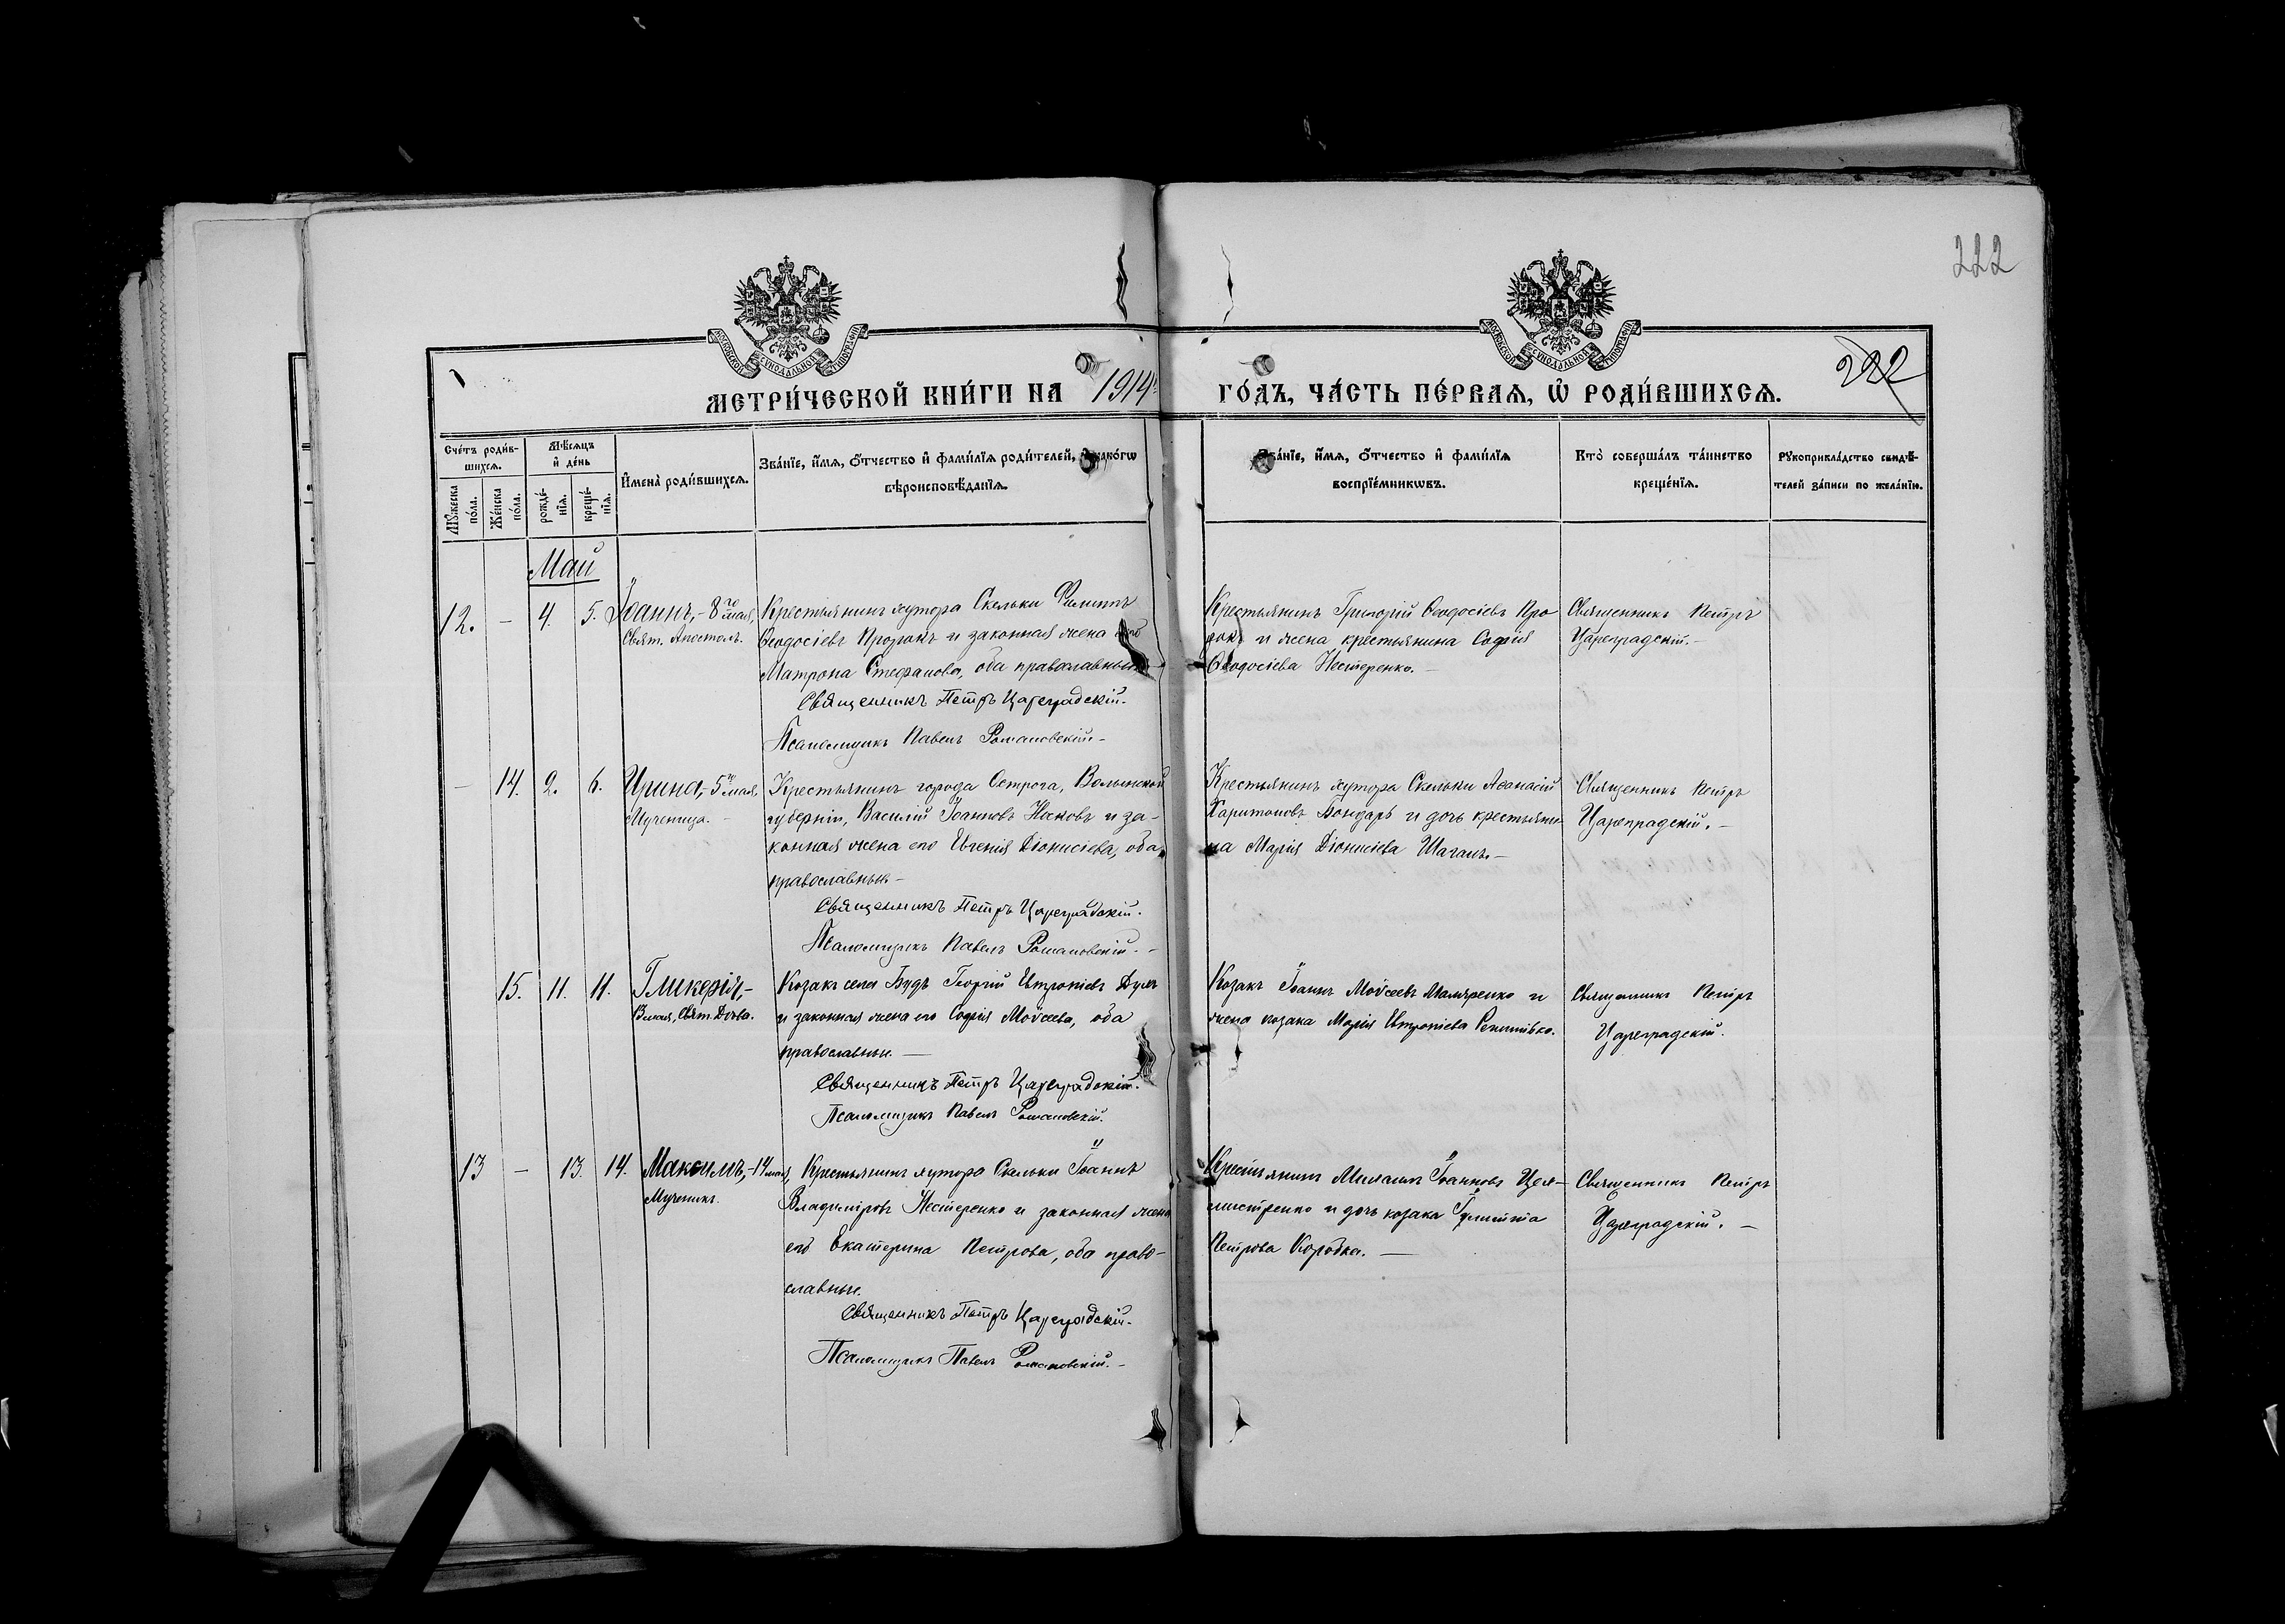 222
МОСКОВСКОЙ СѴНОДАЛЬНОЙ ТИПОГРАФІИ
МОСКОВСКОЙ СѴНОДАЛЬНОЙ ТИПОГРАФІИ
222
МЕТРИ́ЧЕСКОЙ КНИ́ГИ НА 1914 ГО́ДЪ, ЧА́СТЬ ПЕ́РВАЯ, Ѡ҆ РОДИ́ВШИХСЯ.
Сче́тъ роди́в-
шихся.
Мꙋ́жеска по́ла.
Же́нска по́ла.
Мѣ́сяцъ
и҆ де́нь
рожде́-
нїя.
креще́-
нїя.
И҆мена̀ роди́вшихся.
Зва́нїе, и҆́мя, ѻ҆́тчество и҆ фами́лїя роди́телей, и҆ како́гѡ
вѣроисповѣ́данїя.
Зва́нїе, и҆́мя, ѻ҆́тчество и҆ фами́лїя
воспрїе́мникѡвъ.
Кто̀ соверша́лъ та́инство
креще́нїя.
Рꙋкоприкла́дство свидѣ́-
телей за́писи по жела́нїю.
Май
12. – 4. 5. Іоаннъ, – 8го мая,
Свят. Апостолъ.
Крестьянинъ хутора Скельки Филиппъ
Ѳеодосіевъ и законная жена его
Матрона Стефанова, оба православные
Священникъ Петръ Цареградскій.
Псаломщикъ Павелъ Романовскій. –
Крестьянинъ Григорій Ѳеодосіевъ
и жена крестьянина Софія
Ѳеодосіева Нестеренко. –
Священникъ Петръ
Цареградскій. –
– 14. 2. 6. Ирина, – 5го мая,
Мученица. –
Крестьянинъ города Острога, Волынской
губерніи, Василій Іоанновъ и за-
конная жена его Евгенія Діонисіева, оба
православные. –
Священникъ Петръ Цареградскій.
Псаломщикъ Павелъ Романовскій. –
Крестьянинъ хутора Скельки Аѳанасій
Харитоновъ Бондарь и дочь крестьяни-
на Марія Діонисіева –
Священникъ Петръ
Цареградскій. –
15. 11. 11. Гликерія, –
13 мая, Свят. Дѣва.
Козакъ села Будъ Георгій Евтропіевъ
и законная жена его Софія Моѵсеева, оба
православные. –
Священникъ Петръ Цареградскій.
Псаломщикъ Павелъ Романовскій.
Козакъ Іоаннъ Моѵсеевъ и
жена козака Марія Евтропіева
Священникъ Петръ
Цареградскій.
13 – 13. 14. Максимъ, – 14 мая,
Мученикъ.
Крестьянинъ хутора Скельки Іоаннъ
Владиміровъ Нестеренко и законная жена
его Екатерина Петрова, оба право-
славные.
Священникъ Петръ Цареградскій.
Псаломщикъ Павелъ Романовскій. –
Крестьянинъ Михаилъ Іоанновъ
и дочь козака Іулитта
Петрова Коробка. –
Священникъ Петръ
Цареградскій. –